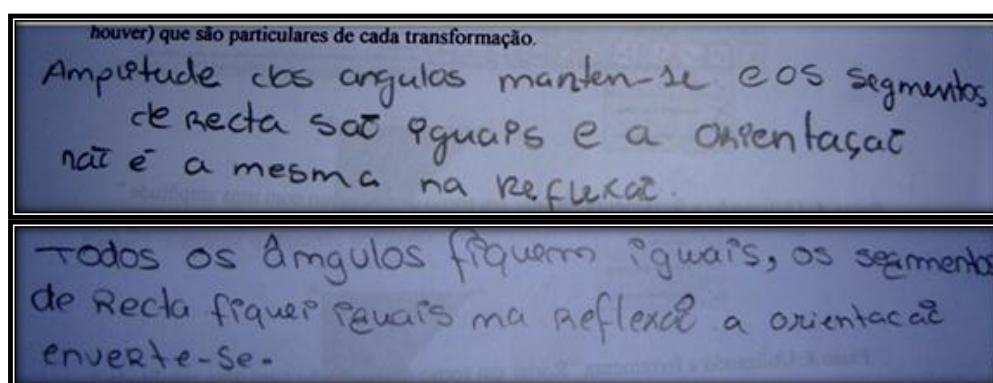 houver) que são particulares de cada transformação.
Amplitude dos angulos manten-se e os segmentos
de Recta saõ iguais e a orientaçaõ
naõ é a mesma na Reflexaõ.
Todos os âmgulos fiquem iguais, os segmentos
de Recta fiquei iguais ma Reflexaõ a orientacaõ
enverte-se.